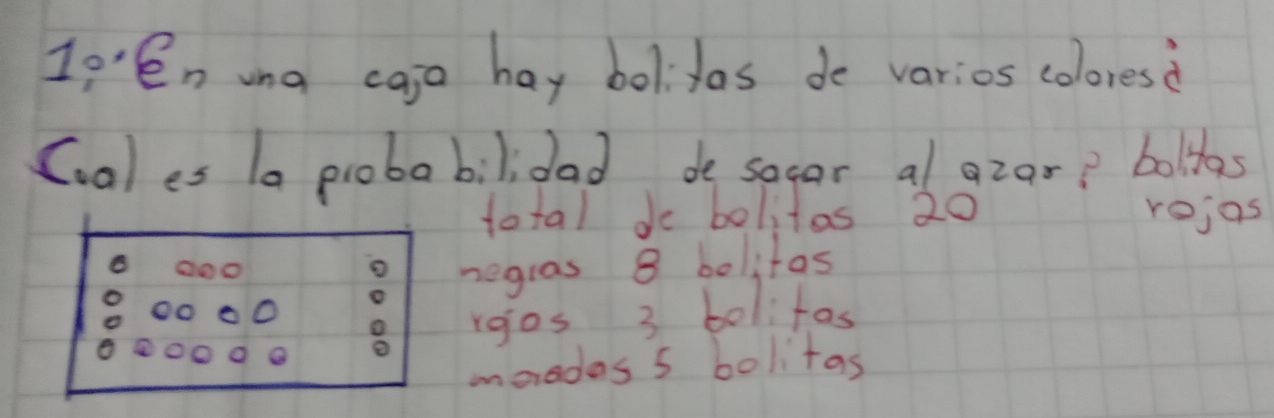 1º: En una caja hay bolitas de varios colores ¿
Cual es la probabilidad de sacar al azar? bolitas
total de bolitas 20 rojas
negras 8 bolitas
rojos 3 bolitas
moradas 5 bolitas